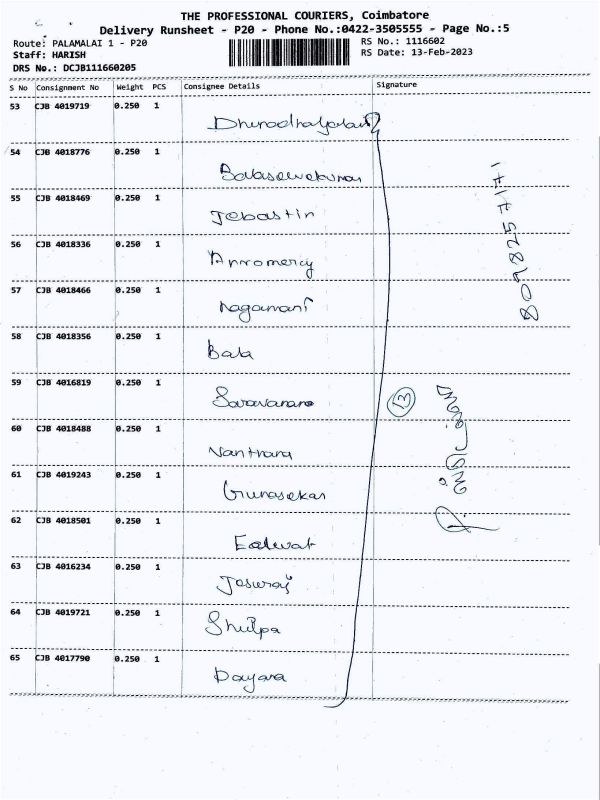 THE PROFESSIONAL COURIERS, Coimbatore
Delivery Runsheet - P20 - Phone No.:0422-3505555 - Page No.:5
Route: PALAMALAI 1 - P20
RS No.: 1116602
Staff: HARISH
RS Date: 13-Feb-2023
DRS No.: DCJB111660205
S No Consignment No Weight PCS Consignee Details Signature
53 CJB 4019719 0.250 1
54 CJB 4018776 0.250 1
55 CJB 4018469 0.250 1 Jebastin
56 CJB 4018336 0.250 1 Annomercy
57 CJB 4018466 0.250 1 Nagamani
58 CJB 4018356 0.250 1 Bala
59 CJB 4016819 0.250 1
13
60 CJB 4018488 0.250 1
61 CJB 4019243 0.250 1 Gunasekar
62 CJB 4018501 0.250 1
63 CJB 4016234 0.250 1
64 CJB 4019721 0.250 1 Shilpa
65 CJB 4017790 0.250 1 Dayana